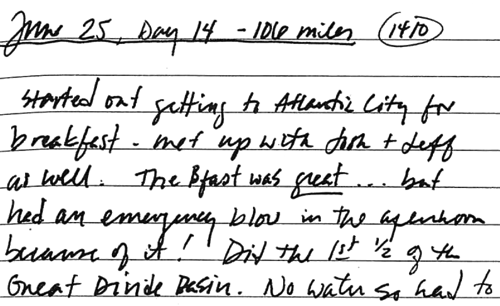 June 25, Day 14 - 106 miles (1410)
started out getting to Atlantic City for
breakfast - met up with Josh + Jeff
as well. The Bfast was great ... but
had an emergency blow in the afternoon
because of it! Did the 1st 1/2 of the
Great Divide Basin. No water so had to